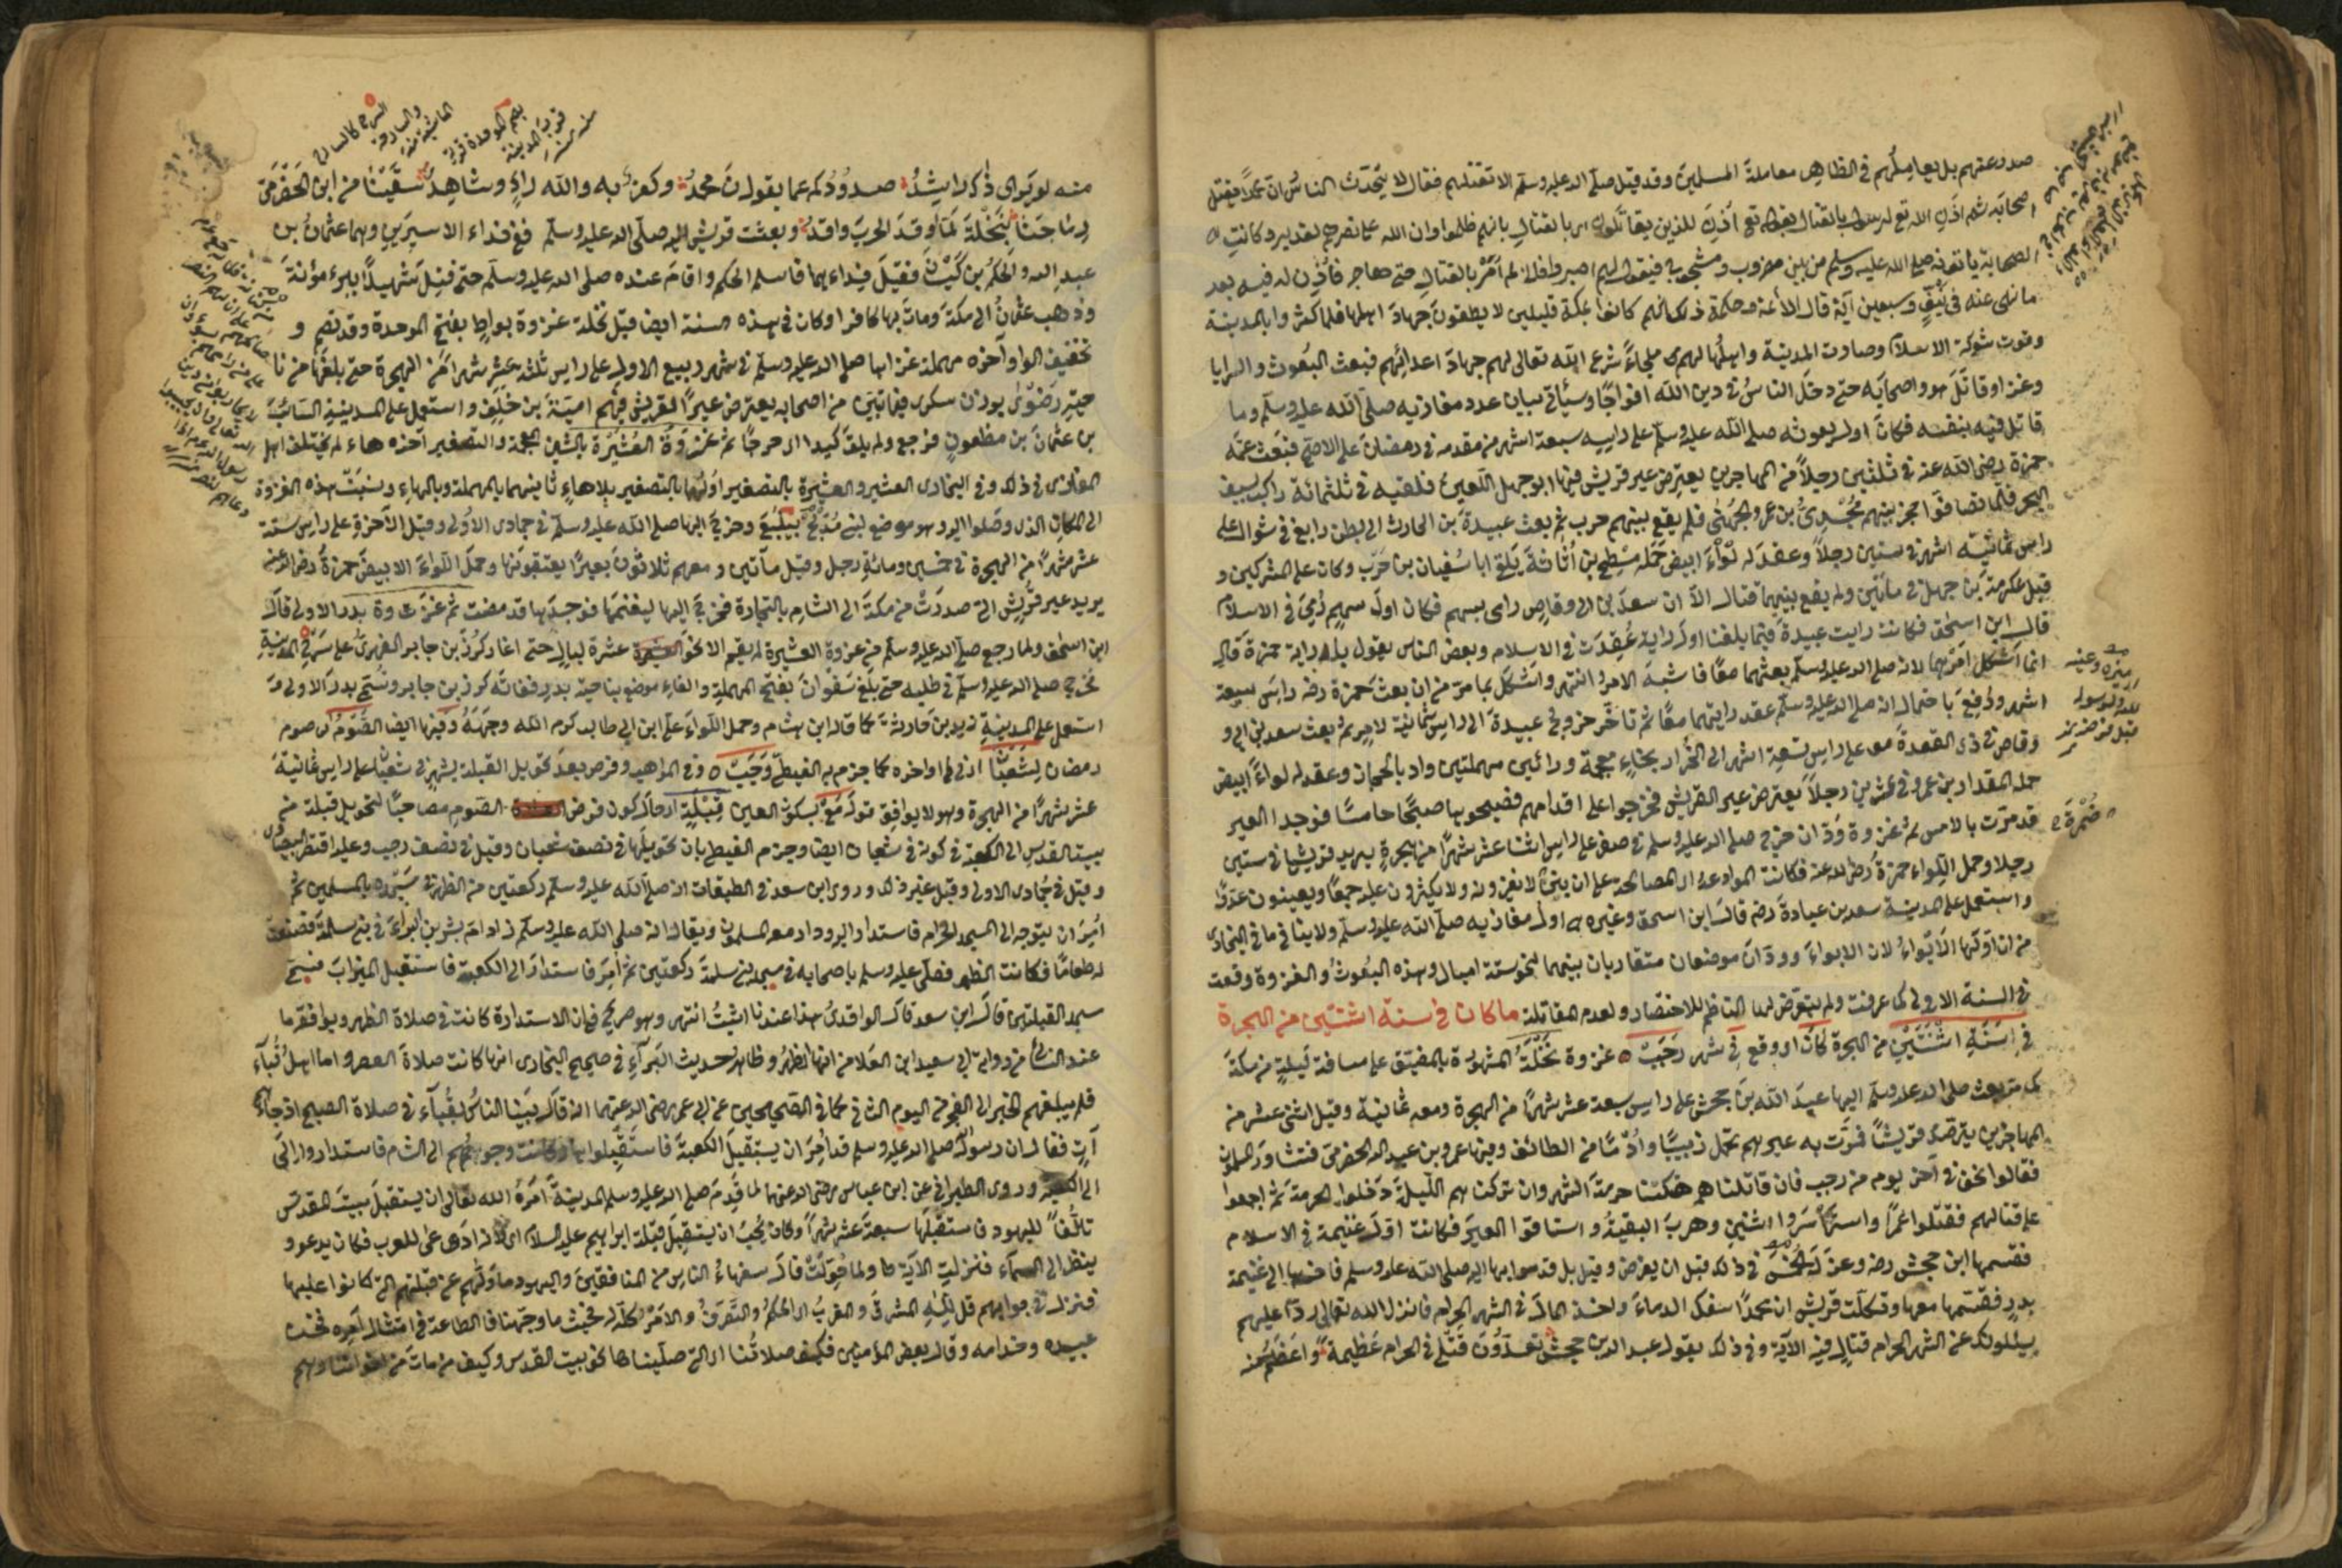 صدورعنهم بل يعاملهم في الظاهر معاملة المسلمين وقد قيل صلى الله عليه وسلم الا تقتلهم فقال لا يتحدث الناس ان محمدا يقتل
اصحابه ثم اذن الله تع لرسوله بالقتال بقوله تع اذن للذين يقاتلون اي بالقتال بانهم ظلموا وان الله على نصرهم لقدير وكانت
الصحابة ياتونه صلى الله عليه وسلم من بين مضروب ومشجوج فيقول لهم اصبروا فاني لم اؤمر بالقتال حتى هاجر فاذن له فيه بعد
ما نهى عنه في نيف وسبعين آية قال الائمة وحكمة ذلك انهم كانوا بمكة قليلين لا يطيقون جهاد اهلها فلما كثروا بالمدينة
وقوت شوكة الاسلام وصارت المدينة واهلها لهم ملجاء شرع الله تعالى لهم جهاد اعدائهم فبعث البعوث والسرايا
وغزا وقاتل هو واصحابه حتى دخل الناس في دين الله افواجا وسيأتي بيان عدد مغازيه صلى الله عليه وسلم وما
قاتل فيه بنفسه فكان اول بعوثه صلى الله عليه وسلم على رأس سبعة اشهر من مقدمه في رمضان على الاصح فبعث عمه
حمزة رضي الله عنه في ثلثين رجلا من المهاجرين يعترض عير قريش فيها ابو جهل اللعين فلقيه في ثلثمائة راكب بسيف
البحر فلما تصافوا حجز بينهم مجدي بن عمرو الجهني فلم يقع بينهم حرب ثم بعث عبيدة بن الحارث الى بطن رابغ في شوال على
راس ثمانية اشهر في ستين رجلا وعقد له لواء ابيض حمله مسطح بن اثاثة يلقى ابا سفيان بن حرب وكان على المشركين و
قيل عكرمة بن جهل في مأتين ولم يقع بينهما قتال الا ان سعد بن ابي وقاص رمى بسهم فكان اول سهم رمي في الاسلام
قال ابن اسحق فكانت راية عبيدة فيما بلغنا اول راية عقدت في الاسلام وبعض الناس يقول بل راية حمزة قال
انما اشكل امرهما لانه صلى الله عليه وسلم بعثهما معا فاشبه الامر انتهى واشكل بما مر من ان بعث حمزة رضه راس سبعة
اشهر ودفع باحتمال انه صلى الله عليه وسلم عقد رايتهما معا ثم تأخر خروج عبيدة الى راس ثمانية لامر ثم بعث سعد بن ابي و
وقاص في ذي القعدة على راس تسعة اشهر الى الخرار بخاء معجمة ورائين مهملتين واد بالحجاز وعقد له لواء ابيض
حمله المقداد بن عمرو في عشرين رجلا يعترض عير القريش فخرجوا على اقدامهم فصبحوها صبحا خامسا فوجدا العير
قد مرت بالامس ثم غزوة ودان خرج صلى الله عليه وسلم في صفر على راس اثنا عشر شهرا من الهجرة يريد قريشا في ستين
رجلا وحمل اللواء حمزة رضي الله عنه فكانت الموادعة اي المصالحة على ان بني لا يغزونه ولا يكثرون عليه جمعا ولا يعينون عدوا
واستعمل على المدينة سعد بن عبادة رضه قال ابن اسحق وغيره اول مغازيه صلى الله عليه وسلم ولا ينافي ما في البخاري
من ان اولها الابواء لان الابواء وودان موضعان متقاربان بينهما نحو ستة اميال وهذه البعوث والغزوة وقعت
في السنة الاولى كما عرفت ولم يتعرض لها الناظم للاختصار ولعدم المقاتلة ما كان في سنة اثنتين من الهجرة
في سنة اثنتين من الهجرة كان او وقع في شهر رجب غزوة نخلة المشهورة بالمضيق على مسافة ليلة من مكة
كما مر بعث صلى الله عليه وسلم اليها عبد الله بن جحش على راس سبعة عشر شهرا من الهجرة ومعه ثمانية وقيل اثني عشر من
المهاجرين يترصد قريشا فمرت به عيرهم تحمل زبيبا وادما من الطائف وفيها عمرو بن عبد الله الحضرمي فتشاور المسلمون
فقالوا نحن في آخر يوم من رجب فان قاتلناهم هتكنا حرمة الشهر وان تركناهم الليلة دخلوا الحرمة ثم اجمعوا
على قتالهم فقتلوا عمرا واستأسروا اثنين وهرب البقية واستاقوا العير فكانت اول غنيمة في الاسلام
فقسمها ابن جحش رضه وعزل الخمس في ذلك قبل ان يفرض وقيل بل قدموا بها اليه صلى الله عليه وسلم فاخرها الى غنيمة
بدر فقسمها معها وتكلمت قريش ان محمدا سفك الدماء واخذ المال في الشهر الحرام فانزل الله تعالى ردا عليهم
يسئلونك عن الشهر الحرام قتال فيه الآية وفي ذلك يقول عبد الله بن جحش تعدون قتلى في الحرام عظيمة واعظم منه
منه لو يرى ذاك راشد صدودكم عما يقول محمد وكفر به والله راء وشاهد سقينا من ابن الحضرمي
رماحنا بنخلة لما اوقد الحرب واقد وبعثت قريش اليه صلى الله عليه وسلم في فداء الاسيرين وهما عثمان بن
عبد الله والحكم بن كيسان فقبل فداءهما فاسلم الحكم واقام عنده صلى الله عليه وسلم حتى قتل شهيدا ببئر معونة
وذهب عثمان الى مكة ومات بها كافرا وكان في هذه السنة ايضا قبل نخلة غزوة بواط بفتح الموحدة وقد تضم و
تخفيف الواو آخره مهملة غزاها صلى الله عليه وسلم في شهر ربيع الاول على راس ثلثة عشر شهرا من الهجرة حتى بلغها من نا
حية رضوى يوزن سكرى في مأتين من اصحابه يعترض عيرا لقريش فيهم امية بن خلف واستعمل على المدينة السائب
بن عثمان بن مظعون فرجع ولم يلق كيدا اي حربا ثم غزوة العشيرة بالشين المعجمة والتصغير آخره هاء لم يختلف اهل
المغازي في ذلك وفي البخاري العشير والعشيرة بالتصغير اولهما بالتصغير بلا هاء ثانيهما بالمهملة وبالهاء ونسبت هذه الغزوة
الى المكان الذي وصلوا اليه وهو موضع لبني مدلج بينبع وخرج اليها صلى الله عليه وسلم في جمادى الاولى وقيل الآخرة على راس ستة
عشر شهرا من الهجرة في خمسين ومائة رجل وقيل مأتين ومعهم ثلاثون بعيرا يعتقبونها وحمل اللواء الابيض حمزة رضي الله عنه
يريد عير قريش التي صدرت من مكة الى الشام بالتجارة فخرج اليها ليغنمها فوجدها قد مضت ثم غزوة بدر الاولى قال
ابن اسحق ولما رجع صلى الله عليه وسلم من غزوة العشيرة لم يقم الا نحو عشرة ليال حتى اغار كرز بن جابر الفهري على سرح المدينة
فخرج صلى الله عليه وسلم في طلبه حتى بلغ سفوان بفتح المهملة والفاء موضع بناحية بدر ففاته كرز بن جابر وتسمى بدرا الاولى
استعمل على المدينة زيد بن حارثة كما قاله ابن هشام وحمل اللواء علي ابن ابي طالب كرم الله وجهه وفيها ايضا الصوم اي صوم
رمضان بشعبان اي في اواخره كما جزم به الغيطي وجب وفي المواهب وفرض بعد تحويل القبلة بشهر في شعبان على راس ثمانية
عشر شهرا من الهجرة وهو لا يوافق قوله مع بسكون العين قبلة اي حال كون فرض الصوم مصاحبا لتحويل قبلة من
بيت المقدس الى الكعبة في كونه في شعبان ايضا وجزم الغيطي بان تحويلها في نصف شعبان وقيل في نصف رجب وعليه اقتصر البيضاوي
وقيل في جمادى الاولى وقيل غير ذلك وروى ابن سعد في الطبقات انه صلى الله عليه وسلم صلى ركعتين من الظهر في مسجده بالمسلمين ثم
امر ان يتوجه الى المسجد الحرام فاستدار اليه ودار معه المسلمون ويقال انه صلى الله عليه وسلم زار ام بشر بن البراء في بني سلمة فصنعت
له طعاما فكانت الظهر فصلى عليه وسلم باصحابه في مسجد بني سلمة ركعتين ثم امر فاستدار الى الكعبة فاستقبل الميزاب فسمي
مسجد القبلتين قال ابن سعد قال الواقدي هذا عندنا اثبت انتهى وهو صريح في ان الاستدارة كانت في صلاة الظهر ويوافقه ما
عند النسائي من رواية ابي سعيد ابن المعلا من انها الظهر وظاهر حديث البراء في صحيح البخاري انها كانت صلاة العصر واما اهل قباء
فلم يبلغهم الخبر الى الفجر من اليوم الثاني كما في الصحيحين عن ابن عمر رضي الله عنهما انه قال بينا الناس بقباء في صلاة الصبح اذ جاءهم
آت فقال ان رسول الله صلى الله عليه وسلم قد امر ان يستقبل الكعبة فاستقبلوها وكانت وجوههم الى الشام فاستداروا الى
الى الكعبة وروى الطبراني عن ابن عباس رضي الله عنهما لما قدم صلى الله عليه وسلم المدينة امره الله تعالى ان يستقبل بيت المقدس
تألفا لليهود فاستقبلها سبعة عشر شهرا وكان يحب ان يستقبل قبلة ابراهيم عليه السلام لانه ادعى للعرب فكان يدعو و
ينظر الى السماء فنزلت الآية ولما حولت قال سفهاء الناس من المنافقين واليهود ما ولهم عن قبلتهم التي كانوا عليها
فنزل في جوابهم قل لله المشرق والمغرب اي الحكم والتصرف والامر كله لله فحيث ما وجهنا فالطاعة في امتثال امره فنحن
عبيده وخدامه وقال بعض المؤمنين فكيف صلاتنا التي صليناها نحو بيت المقدس وكيف من مات من اخواننا وهم